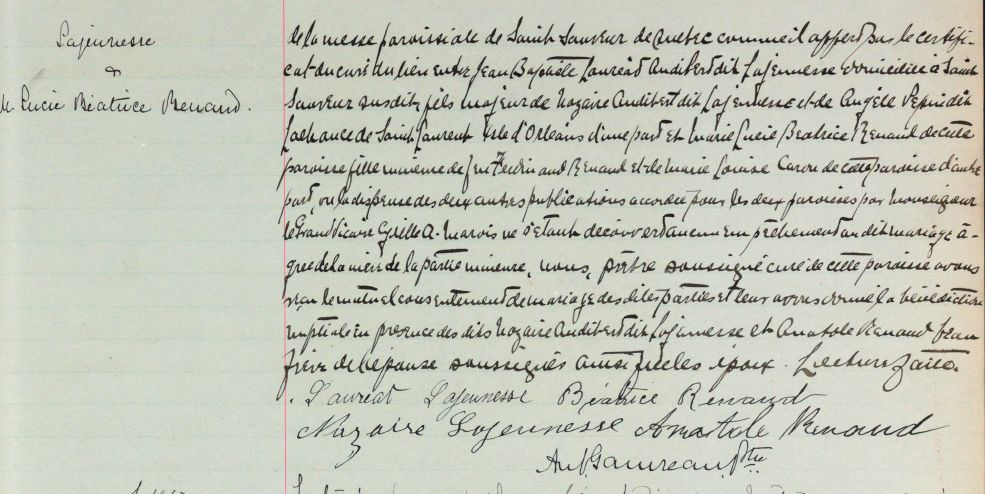 Lajeunesse
&
M. Lucie Béatrice Renaud.
de la messe paroissiale de Saint Sauveur de Québec comme il appert par le certifi-
cat du curé du lieu entre Jean Baptiste Lauréat Audibert dit Lajeunesse domicilié à Saint
Sauveur susdit, fils majeur de Nazaire Audibert dit Lajeunesse et de Angèle Pepin dit
Lachance de Saint Laurent Isle d'Orléans d'une part et Marie Lucie Béatrice Renaud de cette
paroisse fille mineure de feu Ferdinand Renaud et de Marie Louise Caron de cette paroisse d'autre
part, vu la dispense des deux autres publications accordée pour les deux paroisses par Monseigneur
le Grand Vicaire A. Marois ne s'étant découvert aucun empêchement au dit mariage à
gré de la mère de la partie mineure, nous, prêtre soussigné curé de cette paroisse avons
reçu le mutuel consentement de mariage des dites parties et leur avons donné la bénédiction
nuptiale en présence des dits Nazaire Audibert dit Lajeunesse et Anatole Renaud
frère de l'épouse soussignés ainsi que les époux. Lecture faite.
Lauréat Lajeunesse Béatrice Renaud
Nazaire Lajeunesse Anatole Renaud
Ptre